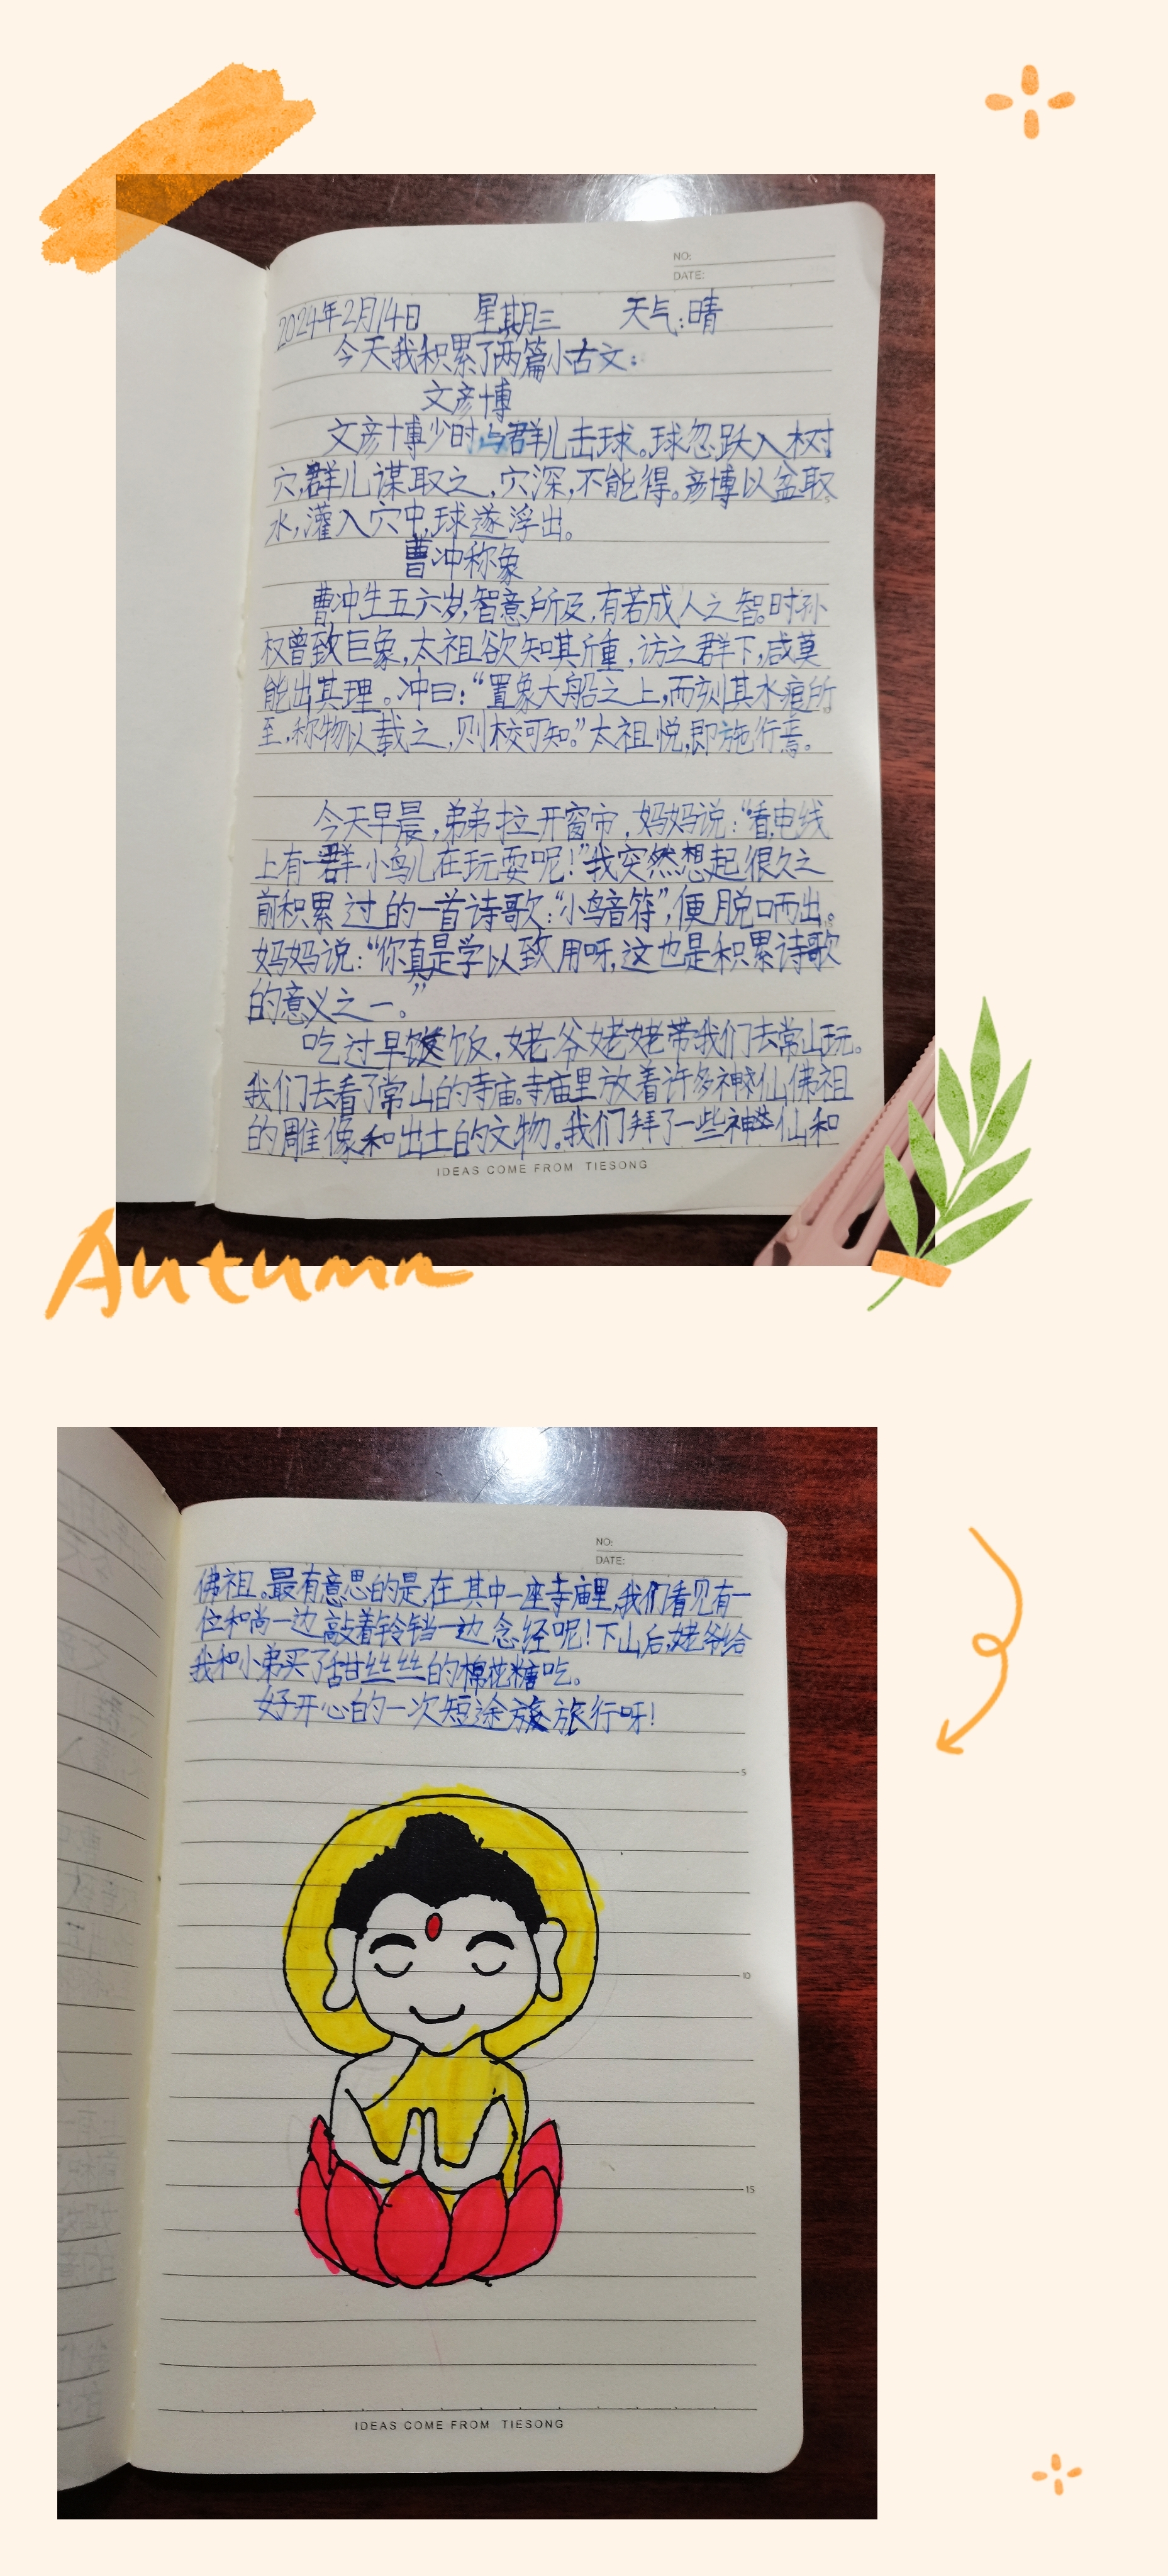 NO:
DATE:
2024年2月14日 星期三 天气:晴
今天我积累了两篇小古文:
文彦博
文彦博少时与群儿击球。球忽跃入树
穴,群儿谋取之,穴深,不能得。彦博以盆取
水,灌入穴中,球遂浮出。
曹冲称象
曹冲生五六岁,智意所及,有若成人之智。时孙
权曾致巨象,太祖欲知其斤重,访之群下,咸莫
能出其理。冲曰:“置象大船之上,而刻其水痕所
至,称物以载之,则校可知。”太祖悦,即施行焉。
今天早晨,弟弟拉开窗帘,妈妈说:“看,电线
上有一群小鸟儿在玩耍呢!”我突然想起很久之
前积累过的一首诗歌:“小鸟音符”,便脱口而出。
妈妈说:“你真是学以致用呀,这也是积累诗歌
的意义之一。”
吃过早饭,姥爷姥姥带我们去常山玩。
我们去看了常山的寺庙。寺庙里放着许多神仙佛祖
的雕像和出土的文物。我们拜了一些神仙和
IDEAS COME FROM TIESONG
Autumn
NO:
DATE:
佛祖。最有意思的是,在其中一座寺庙里,我们看见有一
位和尚一边敲着铃铛一边念经呢!下山后,姥爷给
我和小弟买了甜丝丝的棉花糖吃。
好开心的一次短途旅行呀!
5
10
15
IDEAS COME FROM TIESONG